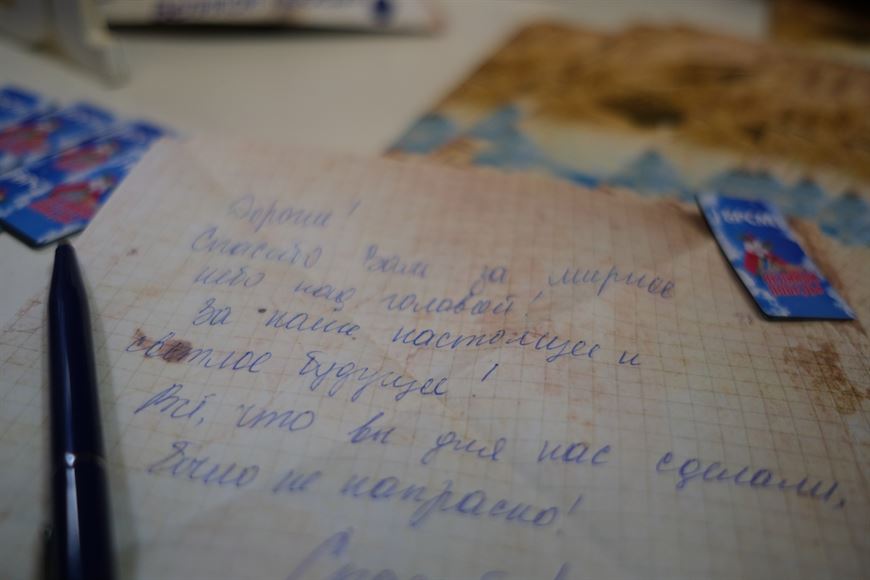 Дорогие!
Спасибо Вам за мирное
небо над головой!
За наше настоящее и
светлое будущее!
Всё, что вы для нас сделали,
было не напрасно!
Спасибо!